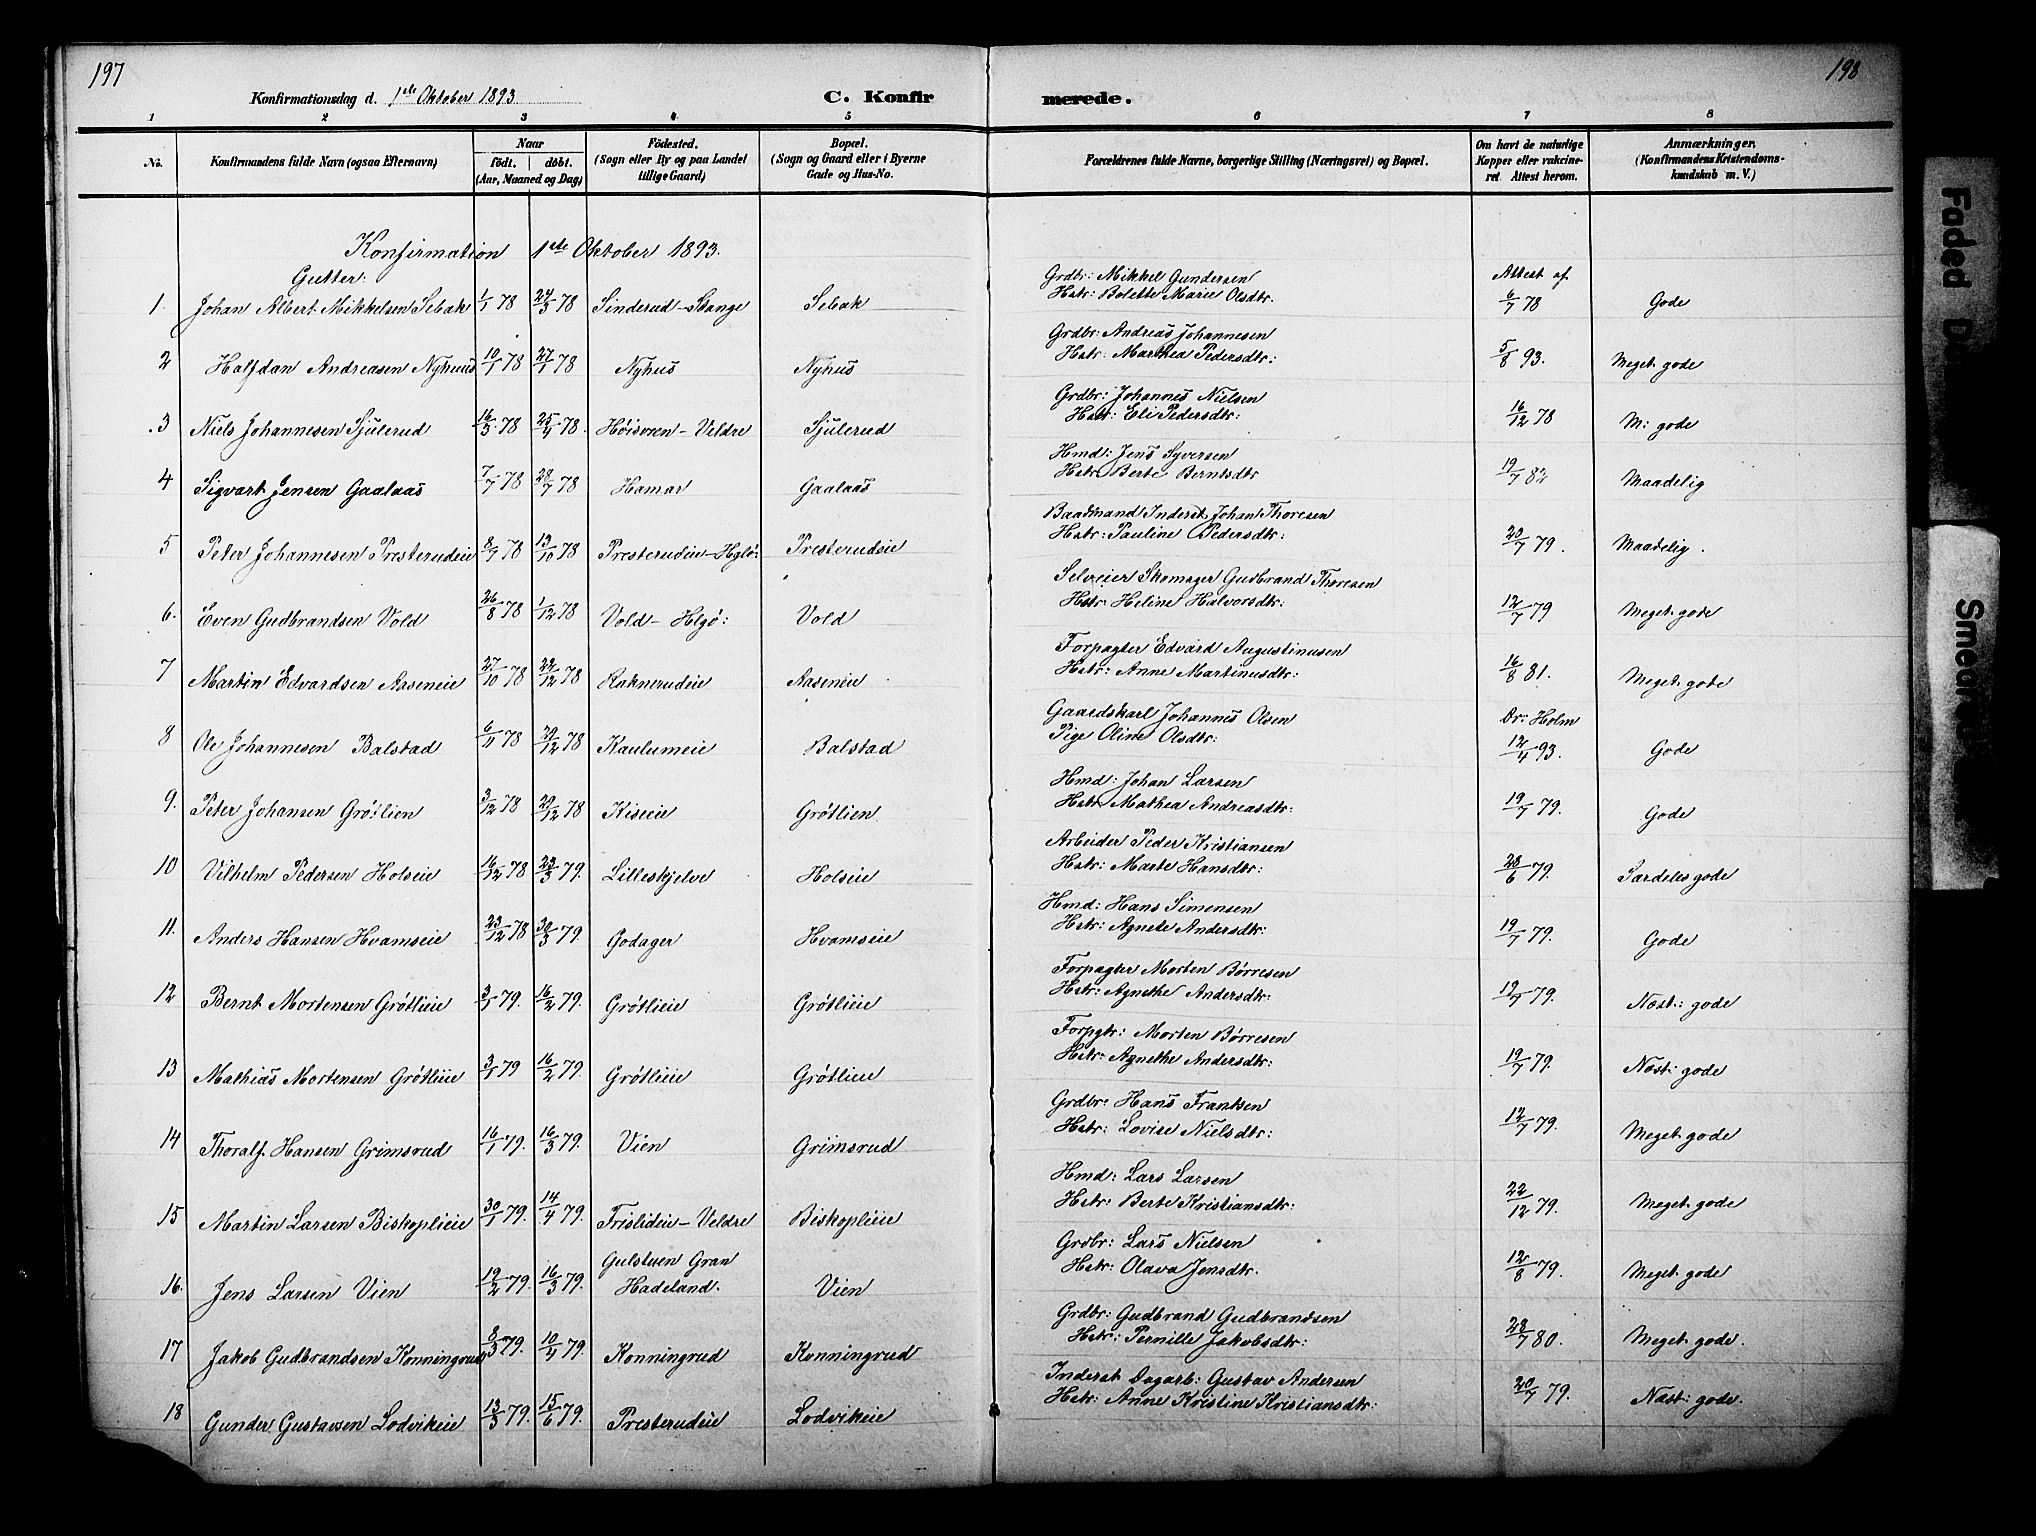 197
198
Konfirmationsdag d. 1ste Oktober 1893
C. Konfir merede.
1 2 3 4 5 6 7 8
No. Konfirmandens fulde Navn (ogsaa Efternavn) Naar födt. döbt. (Aar, Maaned og Dag) Födested. (Sogn eller By og paa Landet tillige Gaard) Bopæl. (Sogn og Gaard eller i Byerne Gade og Hus-No. Forældrenes fulde Navne, borgerlige Stilling (Næringsvei) og Bopæl. Om havt de naturlige Kopper eller vakcineret Attest herom. Anmærkninger. (Konfirmandens Kristendomskundskab m. V.)
Konfirmation 1ste Oktober 1893.
Gutter:
Grdbr: Mikkel Gundersen Attest af
1. Johan Albert Mikkelsen Sebak 1/1 78 24/3 78 Sinderud - Stange Sebak Hstr: Bolette Marie Olsdtr. 6/7 78 Gode
Grdbr: Andreas Johannesen
2 Halfdan Andreasen Nyhuus 10/1 78 27/1 78 Nyhus Nyhus Hstr: Marthea Pedersdtr: 5/8 93. Meget gode
Grdbr: Johannes Nielsen
3 Niels Johannesen Sjulerud 16/3 78 25/4 78. Høisveen - Veldre Sjulerud Hstr: Eli Pedersdtr: 16/12 78 M: gode
Hmd: Jens Syversen
4 Sigvart Jensen Gaalaas 7/7 78 28/7 78 Hamar Gaalaas Hstr Berte Berntsdtr 19/7 82 Maadelig
Baadmand Inderst Johan Thoresen
5 Peter Johannesen Presterudeie 8/9 78 13/10 78 Presterudeie - Hglø: Presterudeie Hstr: Pauline Pedersdtr: 20/7 79. Maadelig.
Selveier Skomager Gudbrand Thoresen
6. Even Gudbrandsen Vold 26/8 78 1/12 78 Vold - Hlgø: Vold Hstr: Heline Halvorsdtr: 12/7 79 Meget gode
Forpagter Edvard Augustinusen
7 Martin Edvardsen Aaseneie 27/10 78 22/12 78 Raknerudeie Aaseneie Hstr: Anne Martinusdtr: 16/8 81. Meget gode
Gaardskarl Johannes Olsen Dr: Holm
8 Ole Johannesen Balstad 6/11 78 29/12 78 Kaulumeie Balstad Pige Oline Olsdtr: 12/4 93. Gode
Hmd: Johan Larsen
9. Peter Johansen Grøtlien 3/12 78 29/12 78 Kiseeie Grøtlien Hstr Mathea Andreasdtr: 19/7 79. Gode
Arbeider Peder Kristiansen
10 Vilhelm Pedersen Holseie 16/12 78 23/3 79. Lilleskjelve Holseie Hstr: Marte Hansdtr: 28/6 79. Særdeles gode
Hmd: Hans Simensen
11. Anders Hansen Hvamseie 23/12 78 30/3 79. Godager Hvamseie Hstr: Agnete Andersdtr: 19/7 79. Gode
Forpagter Morten Børresen
12 Bernt Mortensen Grøtlieie 3/1 79. 16/2 79. Grøtlieie Grøtlieie Hstr: Agnethe Andersdtr: 19/7 79. Næst: gode
Forpgtr: Morten Børresen
13 Mathias Mortensen Grøtlieie 3/1 79 16/2 79. Grøtlieie Grøtlieie Hstr: Agnethe Andersdtr: 19/7 79. Næst: gode
Grdbr: Hans Frantsen
14 Thoralf Hansen Grimsrud 16/1 79. 16/3 79. Vien Grimsrud Hstr: Lovise Nielsdtr: 12/7 79. Meget gode
Hmd: Lars Larsen
15 Martin Larsen Biskoplieie 30/1 79. 14/4 79. Frislideie - Veldre Biskoplieie Hstr: Berte Kristiansdtr: 22/12 79. Meget gode
Gulstuen Gran Grdbr: Lars Nielsen
16. Jens Larsen Vien 19/2 79. 16/3 79. Hadeland. Vien Hstr: Olava Jensdtr. 12/8 79. Meget gode
Grdbr: Gudbrand Gudbrandsen
17 Jakob Gudbrandsen Konningrud 8/3 79. 10/4 79. Konningrud Konningrud Hstr: Pernille Jakobsdtr: 28/7 80. Meget gode.
Inderst Dagarb: Gustav Andersen
18 Gunder Gustavsen Lodvikeie 13/3 79. 15/6 79. Presterudeie Lodvikeie Hstr: Anne Kristine Kristiansdtr: 20/7 79. Næst: gode.
Faded